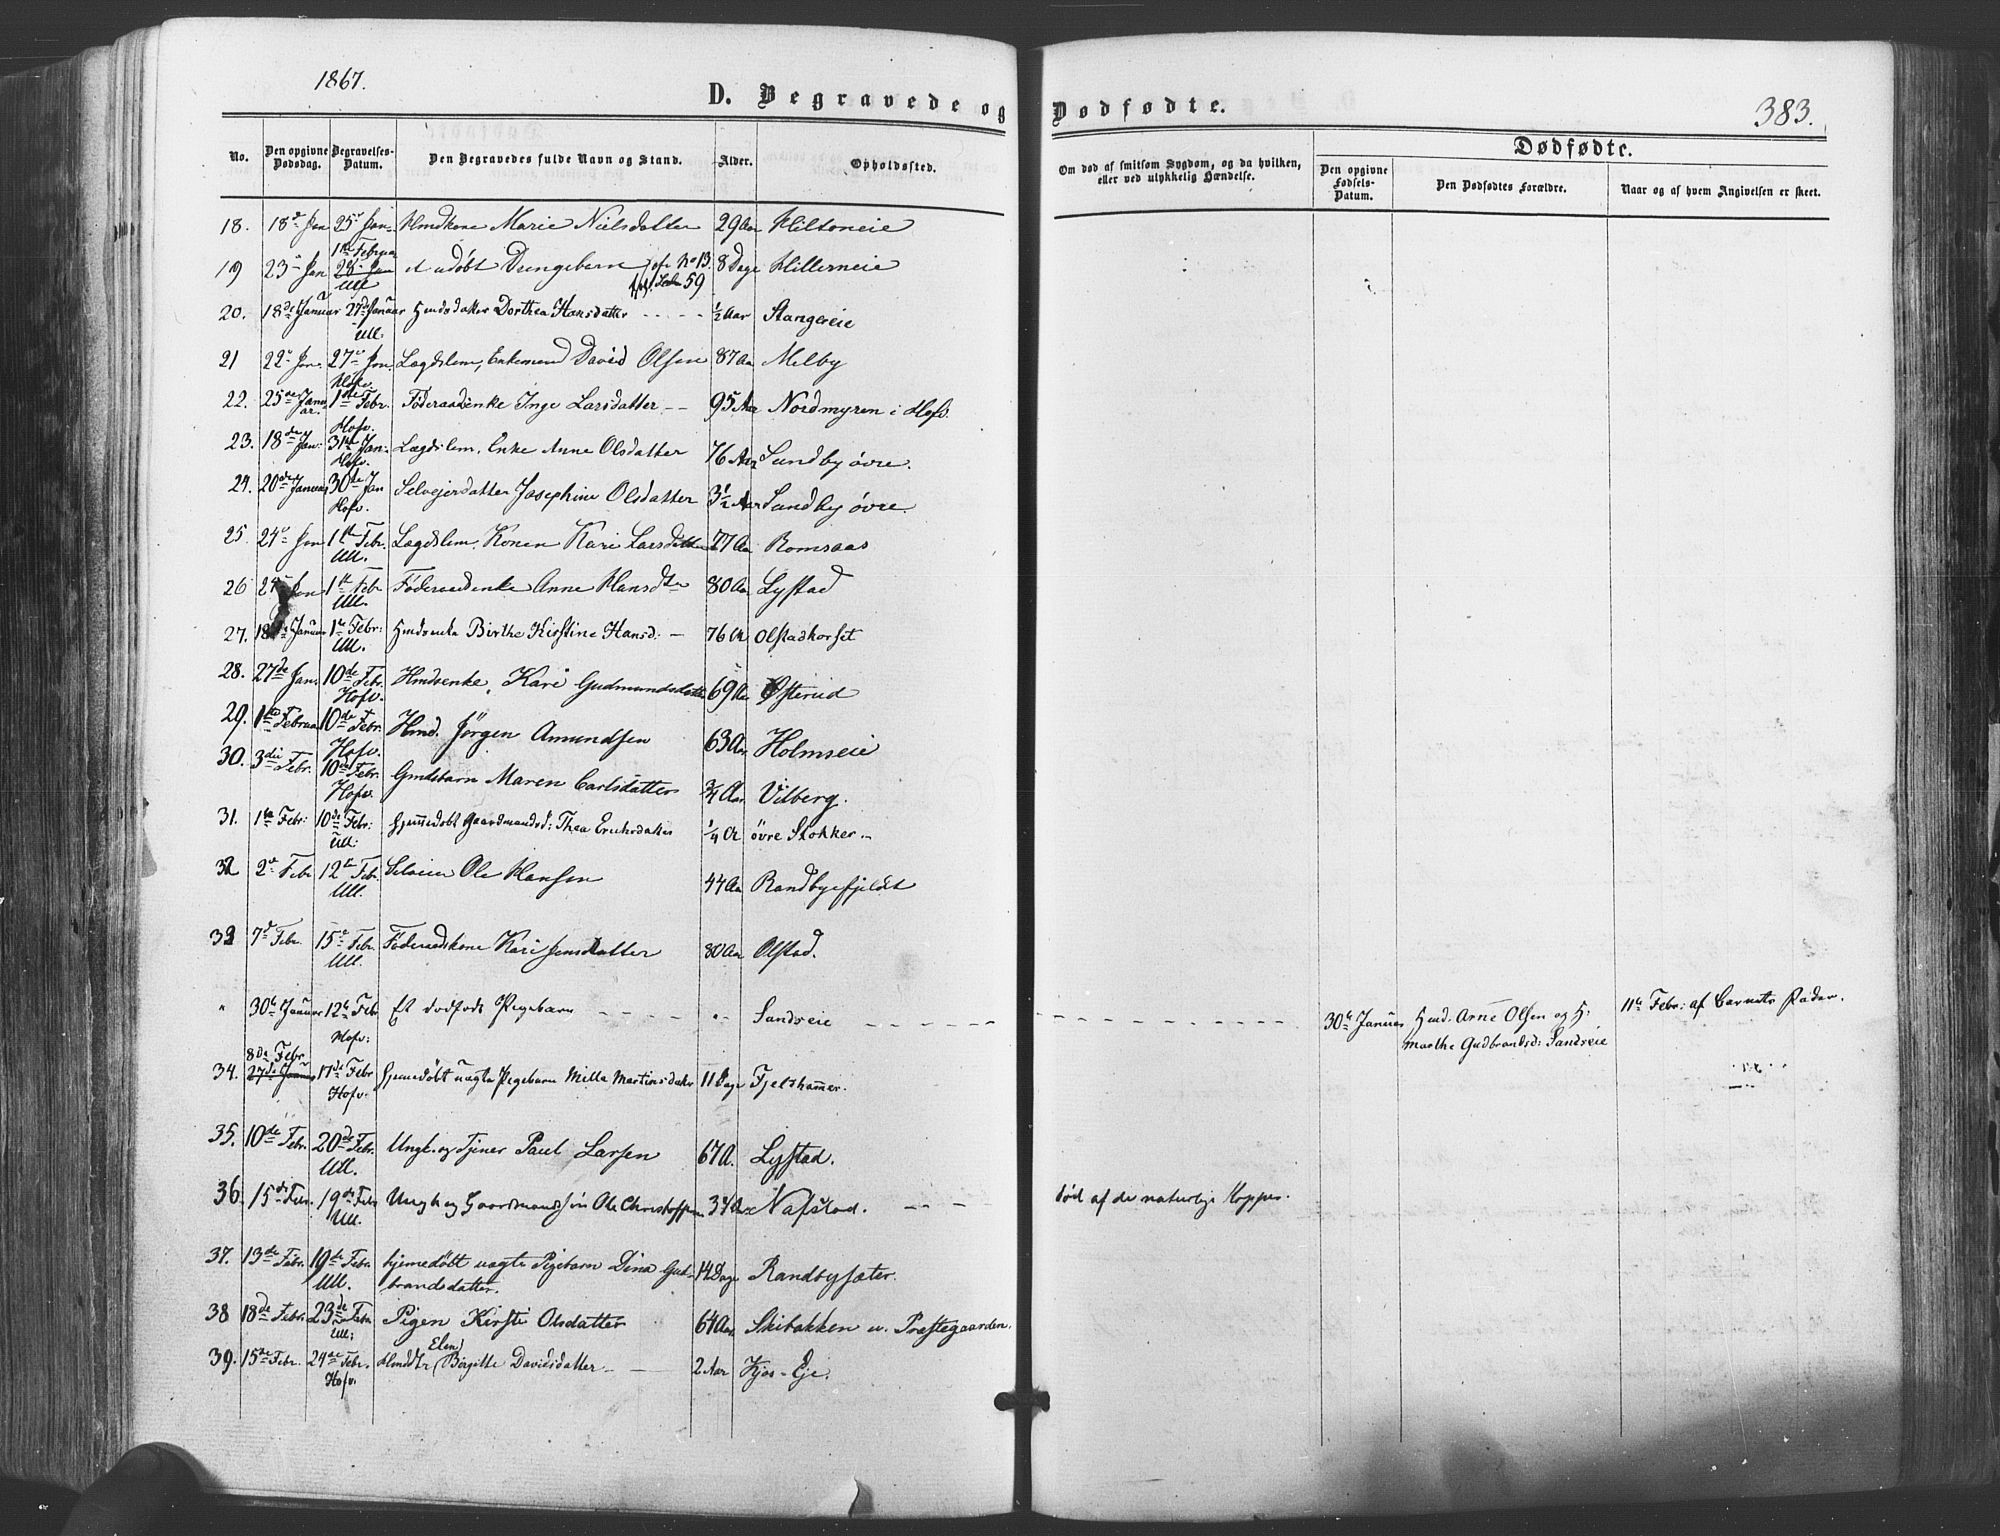 1867.
D. Begravede og Dødfødte.
383.
No. Den opgivne Dødsdag. Begravelses-Datum. Den Begravedes fulde Navn og Stand. Alder. Opholdssted. Om død af smitsom Sygdom, og da hvilken, eller ved ulykkelig Hændelse. Dødfødte. Den opgivne Fødsels-Datum. Den Dødfødtes Forældre. Naar og af hvem Angivelsen er skeet.
18. 18de Jan 25de Jan. Hmdkone Marie Nielsdatter 29 Aar Hiltoneie
1ste Februar
19 23de Jan 28de Jan et udøbt Drengebarn 8 Dage Hillerneie
Ull
No 13. 59
20. 18de Januar 27de Januar Hmdsdatter Dorthea Hansdatter - - - - ½ Aar Stangereie
Ull.
21 22de Jan. 27de Jan. Lægdslem, Enkemand David Olsen 87 Aar Melby
Hofv.
22. 25de Januar. 1ste Febr. Föderaadsenke Inge Larsdatter - - 95 Aar Nordmyren i Hofv.
Hofv.
23. 18de Jan. 31te Jan. Lægdslem. Enke Anne Olsdatter 76 Aar Sundby øvre.
Hofv.
24. 20de Januar 30de Jan Selveierdatter Josephine Olsdatter 3½ Aar Sundby øvre.
Hofv.
25. 24de Jan 1ste Febr. Lægdslem, Konen Kari Larsdatter 77 Aar Romsaas
Ull.
26 24de Jan 1ste Febr Føderaadsenke Anne Hansdtr 80 Aar Lystad
Ull.
27. 18de Januar 1ste Febr: Hmdsenke Birthe Kirstine Hansd: - 76 A Olstadkorset
Ull.
28. 27de Jan. 10de Febr. Hmdsenke, Kari Gudmundsdatter 69 Aar Østerud
Hofv.
29. 1ste Februar 10de Febr. Hmd. Jörgen Amundsen 63 Aar Holmseie
Hofv.
30. 3die Febr. 10de Febr. Gmdsbarn Maren Carlsdatter ¾ Aar Vilberg.
Hofv.
31. 1ste Febr: 10de Febr: Hjemmedøbt Gaardmandsd: Thea Eriksdatter ¼ A øvre Stokker -
Ull.
32 2de Febr 12te Febr. Selveier Ole Hansen 44 Aar Randbyefjeldet
Ull.
33 7de Febr. 15de Febr. Föderaadskone Kari Jensdatter 80 Aar Olstad.
Ull.
" 30te Januar 12te Febr Et dødfødt Pigebarn - - - - " Sandseie - - - - 30te Januar Hmd. Arne Olsen og H: 11te Febr: af Barnets Fader.
Hofv: Marthe Gudbrandsd: Sandseie
8de Febr
34. 27de Januar 17de Febr Hjemmedøbt uægte Pigebarn Milla Martinsdatter 11 Dage Fjelshammer.
Hofv.
35. 10de Febr. 20de Febr. Ungk. og Tjener Paul Larsen 67 A. Lystad.
Ull.
36. 15de Febr. 19de Febr Ungk og Gaardmandssön Ole Christoffersen 34 Aar Nafstad. - - - død af de naturlige Kopper.
Ull.
37. 13de Febr. 19de Febr. hjemedöbt uægte Pigebarn Dina Gud- 14 Dage Randbysæter.
Ull. brandsdatter.
38 18de Febr. 23de Febr Pigen Kirsti Olsdatter 64 Aar. Skibakken u. Præstegaarden.
Ull.
Elen
39. 15de Febr. 24de Febr. Hmddtr Birgitte Davidsdatter - - 2 Aar Kjos-Eje.
Hofv.